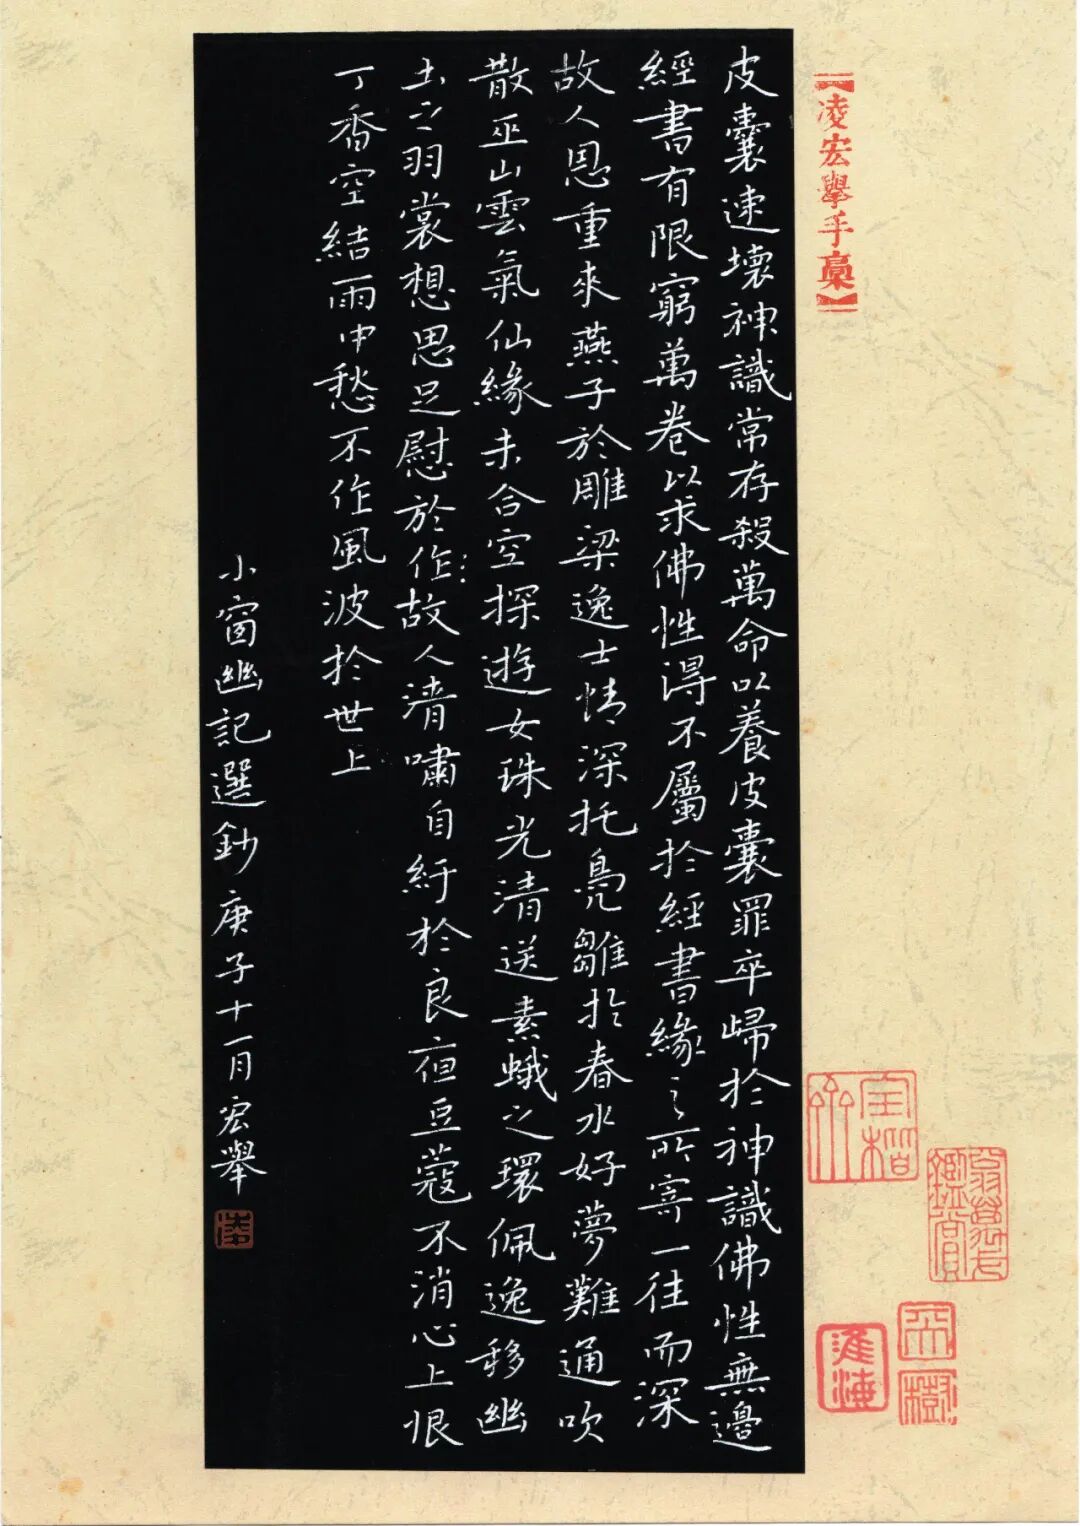 【凌宏舉手稾】
皮囊速壞神識常存殺萬命以養皮囊罪卒歸於神識佛性無邊
經書有限窮萬卷以求佛性得不屬於經書緣之所寄一往而深
故人恩重來燕子於雕梁逸士情深托鳧雛於春水好夢難通吹
散巫山雲氣仙緣未合空探遊女珠光清送素蛾之環佩逸移幽
士之羽裳想思足慰於作故人清嘯自紓於良夜豆蔻不消心上恨
丁香空結雨中愁不作風波於世上
小窗幽記選鈔庚子十一月宏舉
淮海